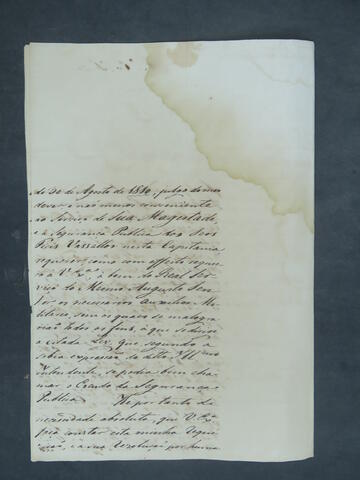 de 30 de Agosto de 1810, julgo do meu
dever, e não menos conveniente
ao Serviço de Sua Magestade,
e a Segurança Publica dos Seos
Fieis Vassallos nesta Capitania
requerer, como com effeito requei-
ro a V. Ex.ª, à bem do Real Ser-
viço do Mesmo Augusto Senhor,
os necessarios Auxilios Mi-
litares, sem os quaes se malogra-
rão todos os fins, à que se dirige
a citada Ley, que segundo a
sobia expressão do
Intendente, se podia bem cha-
mar o Escudo da Segurança
Publica. He por tanto da
necessidade absoluta, que V. Ex.ª
faça constar esta minha Requi-
sição, e a sua Rezolução por huma